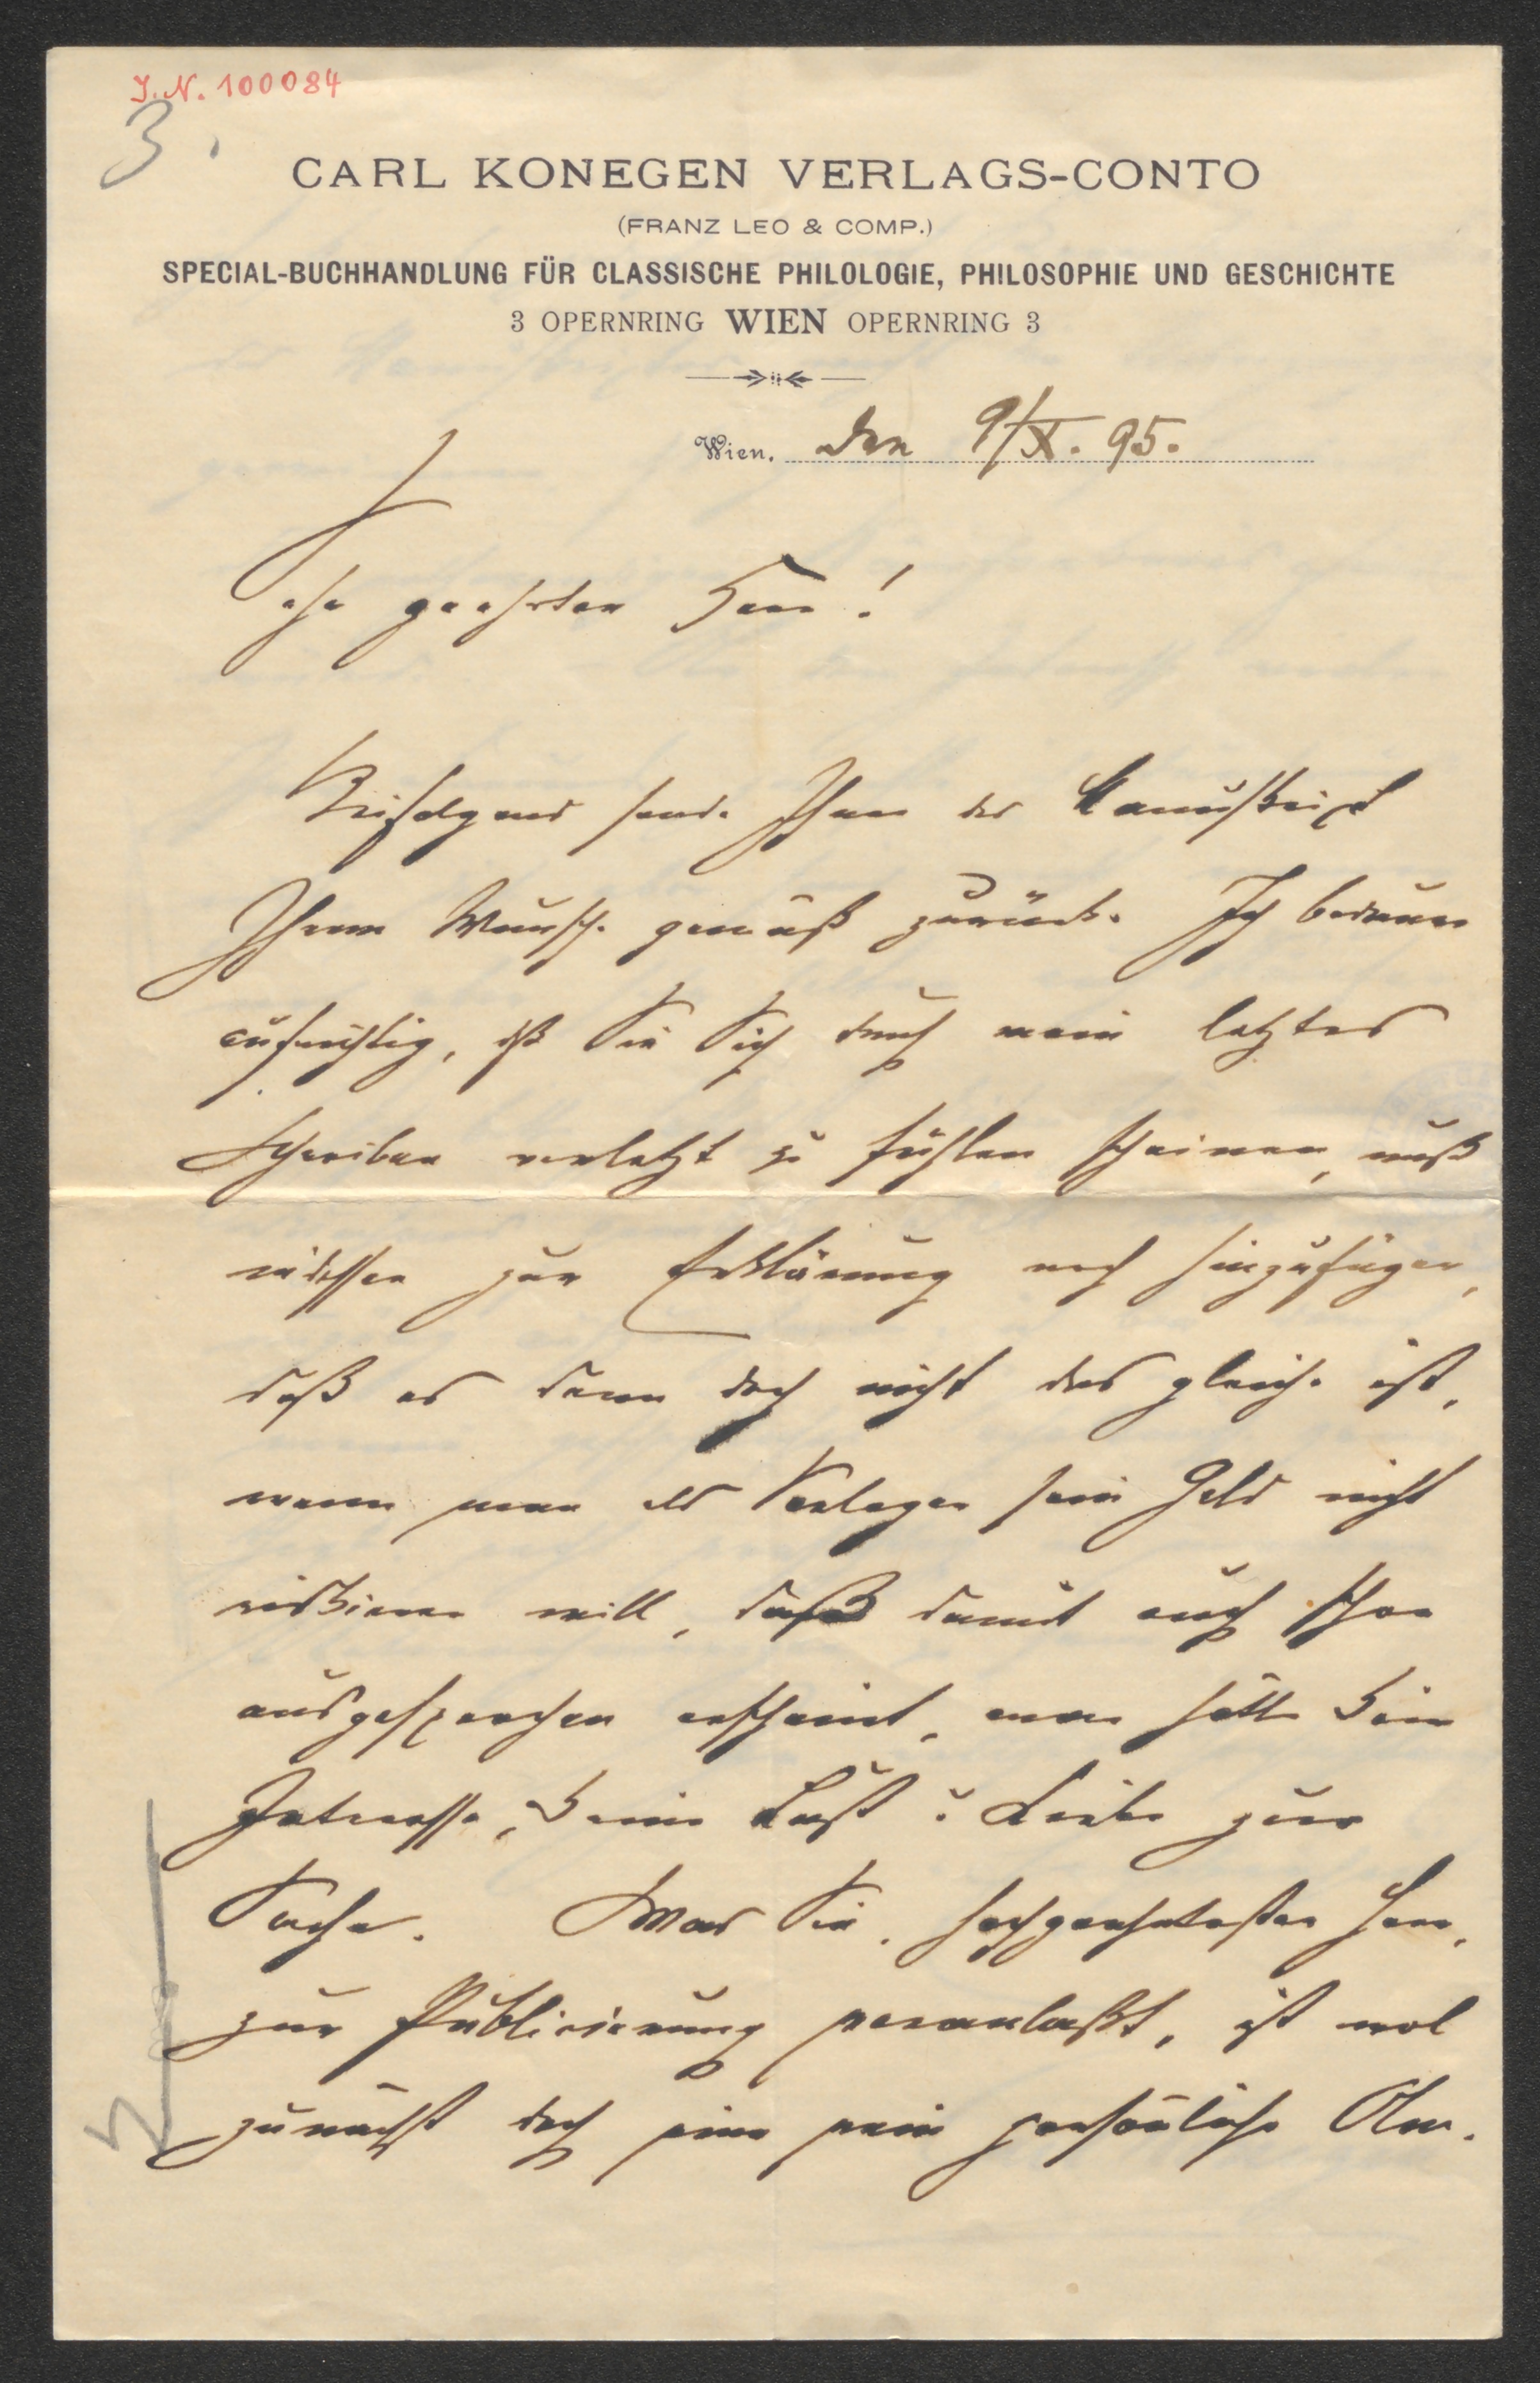 J.N. 100084
3.
CARL KONEGEN VERLAGS-CONTO
(FRANZ LEO & COMP.)
SPECIAL-BUCHHANDLUNG FÜR CLASSISCHE PHILOLOGIE, PHILOSOPHIE UND GESCHICHTE
3 OPERNRING WIEN OPERNRING 3
Wien, den 9/X. 95.
Sehr geehrter Herr!
Beifolgend sende Ihnen das Manuskript
Ihrem Wunsche gemäß zurück. Ich bedaure
aufrichtig, dß Sie Sich durch mein letztes
Schreiben verletzt zu fühlen scheinen, muß
indessen zur Erklärung noch hinzufügen,
daß es denn doch nicht das gleiche ist,
wenn man als Verleger sein Geld nicht
riskieren will, daß damit auch schon
ausgesprochen erscheint, man hätte kein
Interesse, keine Lust u. Liebe zur
Sache. Was Sie, hochgeehrtester Herr,
zur Publicierung veranlaßt, ist wol
zunächst doch eine rein persönliche